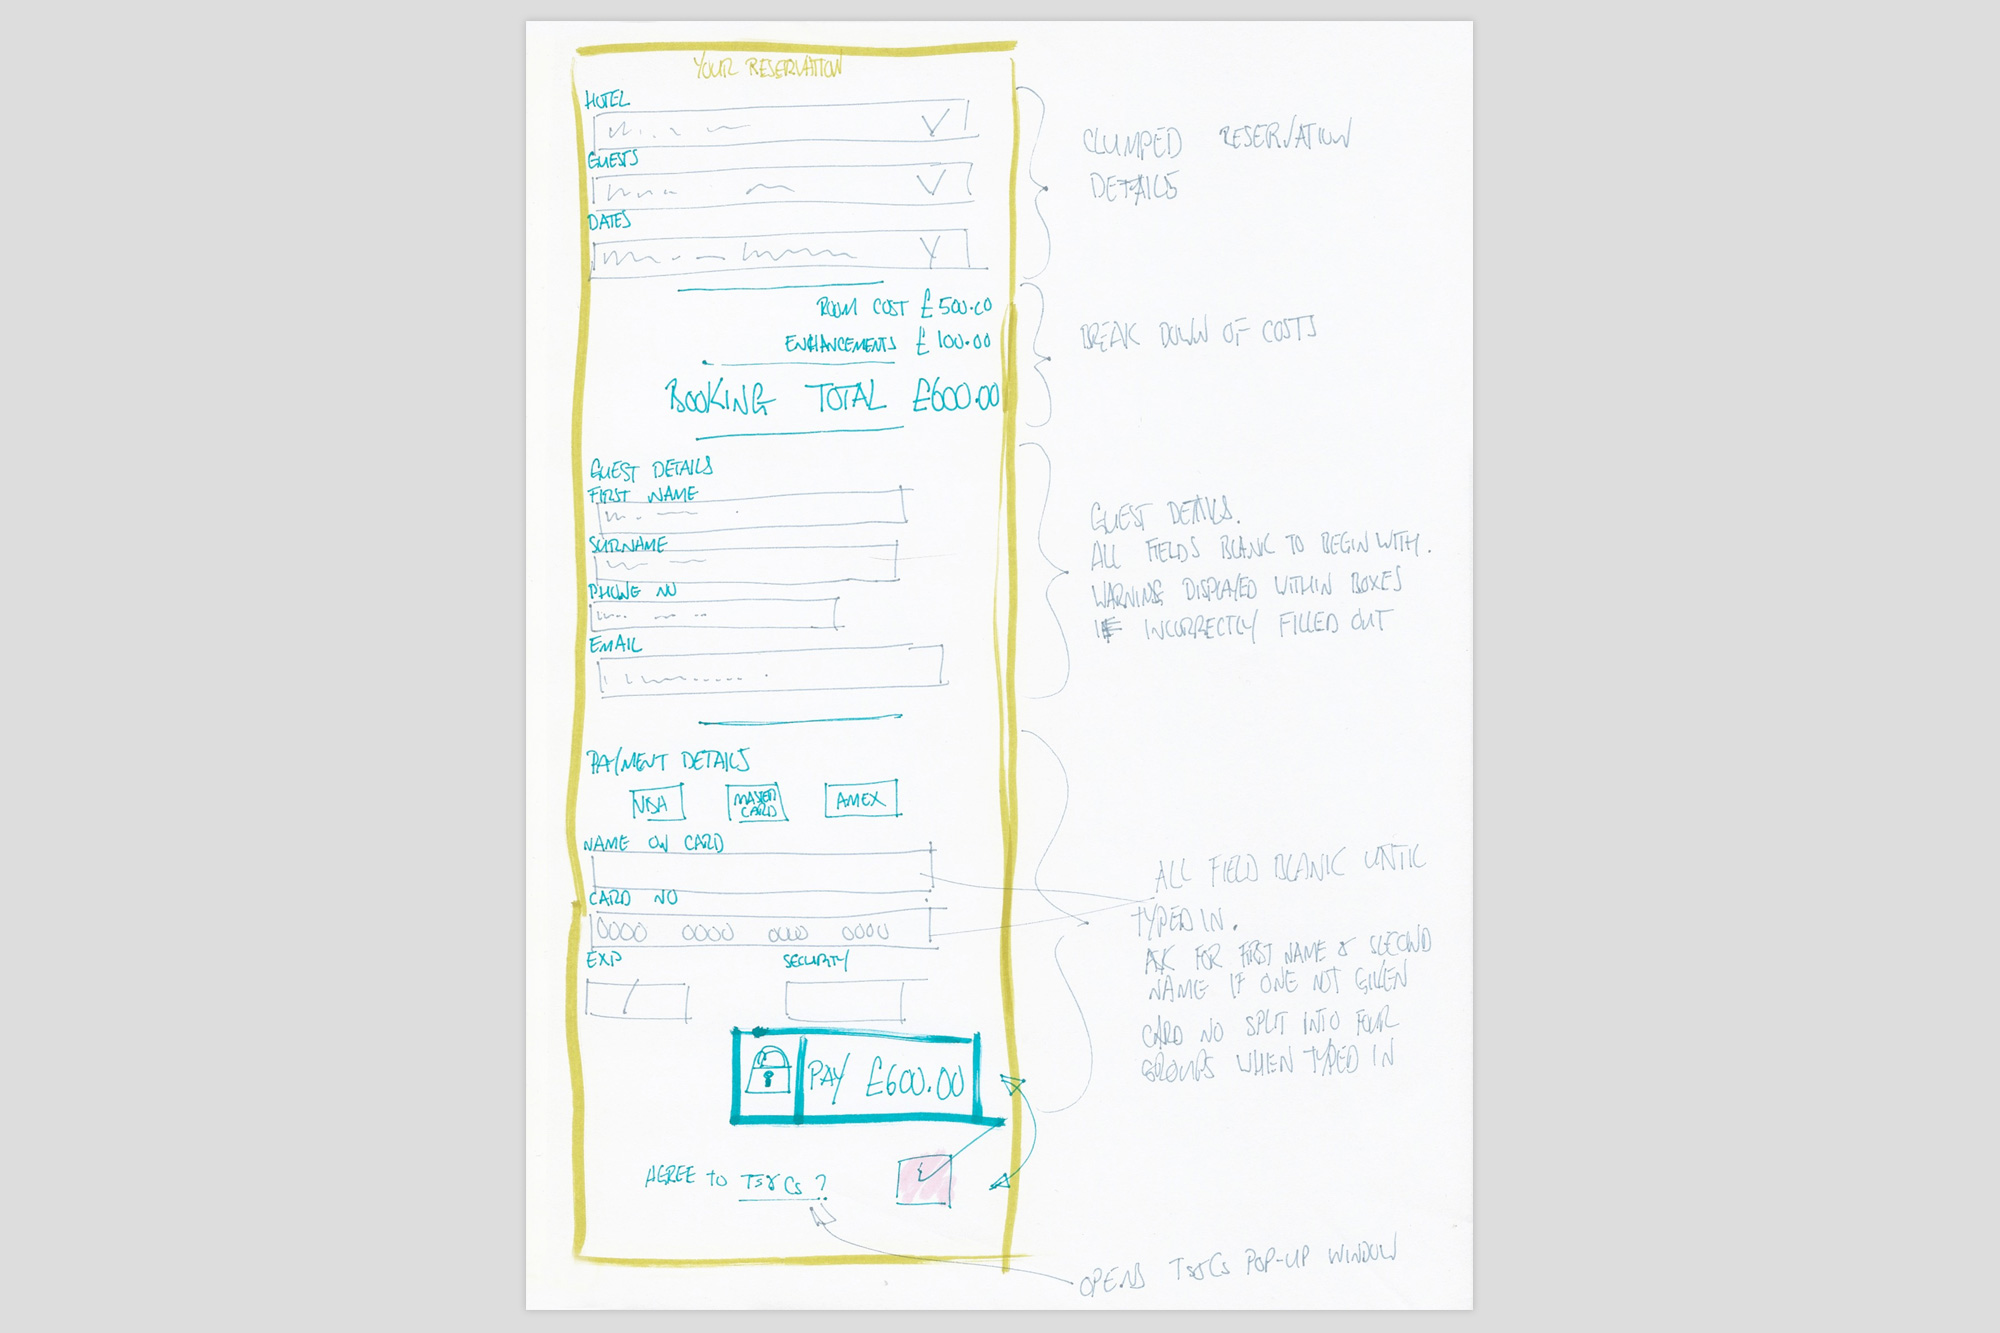 YOUR RESERVATION
HOTEL
GUESTS
DATES
ROOM COST £500.00
ENHANCEMENTS £100.00
BOOKING TOTAL £600.00
GUEST DETAILS
FIRST NAME
SURNAME
PHONE NO
EMAIL
PAYMENT DETAILS
VISA
MASTER
CARD
AMEX
NAME ON CARD
CARD NO
0000 0000 0000 0000
EXP
SECURITY
/
PAY £600.00
AGREE TO Ts&Cs?
CLUMPED RESERVATION
DETAILS
BREAK DOWN OF COSTS
GUEST DETAILS.
ALL FIELDS BLANK TO BEGIN WITH.
WARNING DISPLAYED WITHIN BOXES
IF INCORRECTLY FILLED OUT
ALL FIELD BLANK UNTIL
TYPED IN.
ASK FOR FIRST NAME & SECOND
NAME IF ONE NOT GIVEN
CARD NO SPLIT INTO FOUR
GROUPS WHEN TYPED IN
OPENS Ts&Cs POP-UP WINDOW